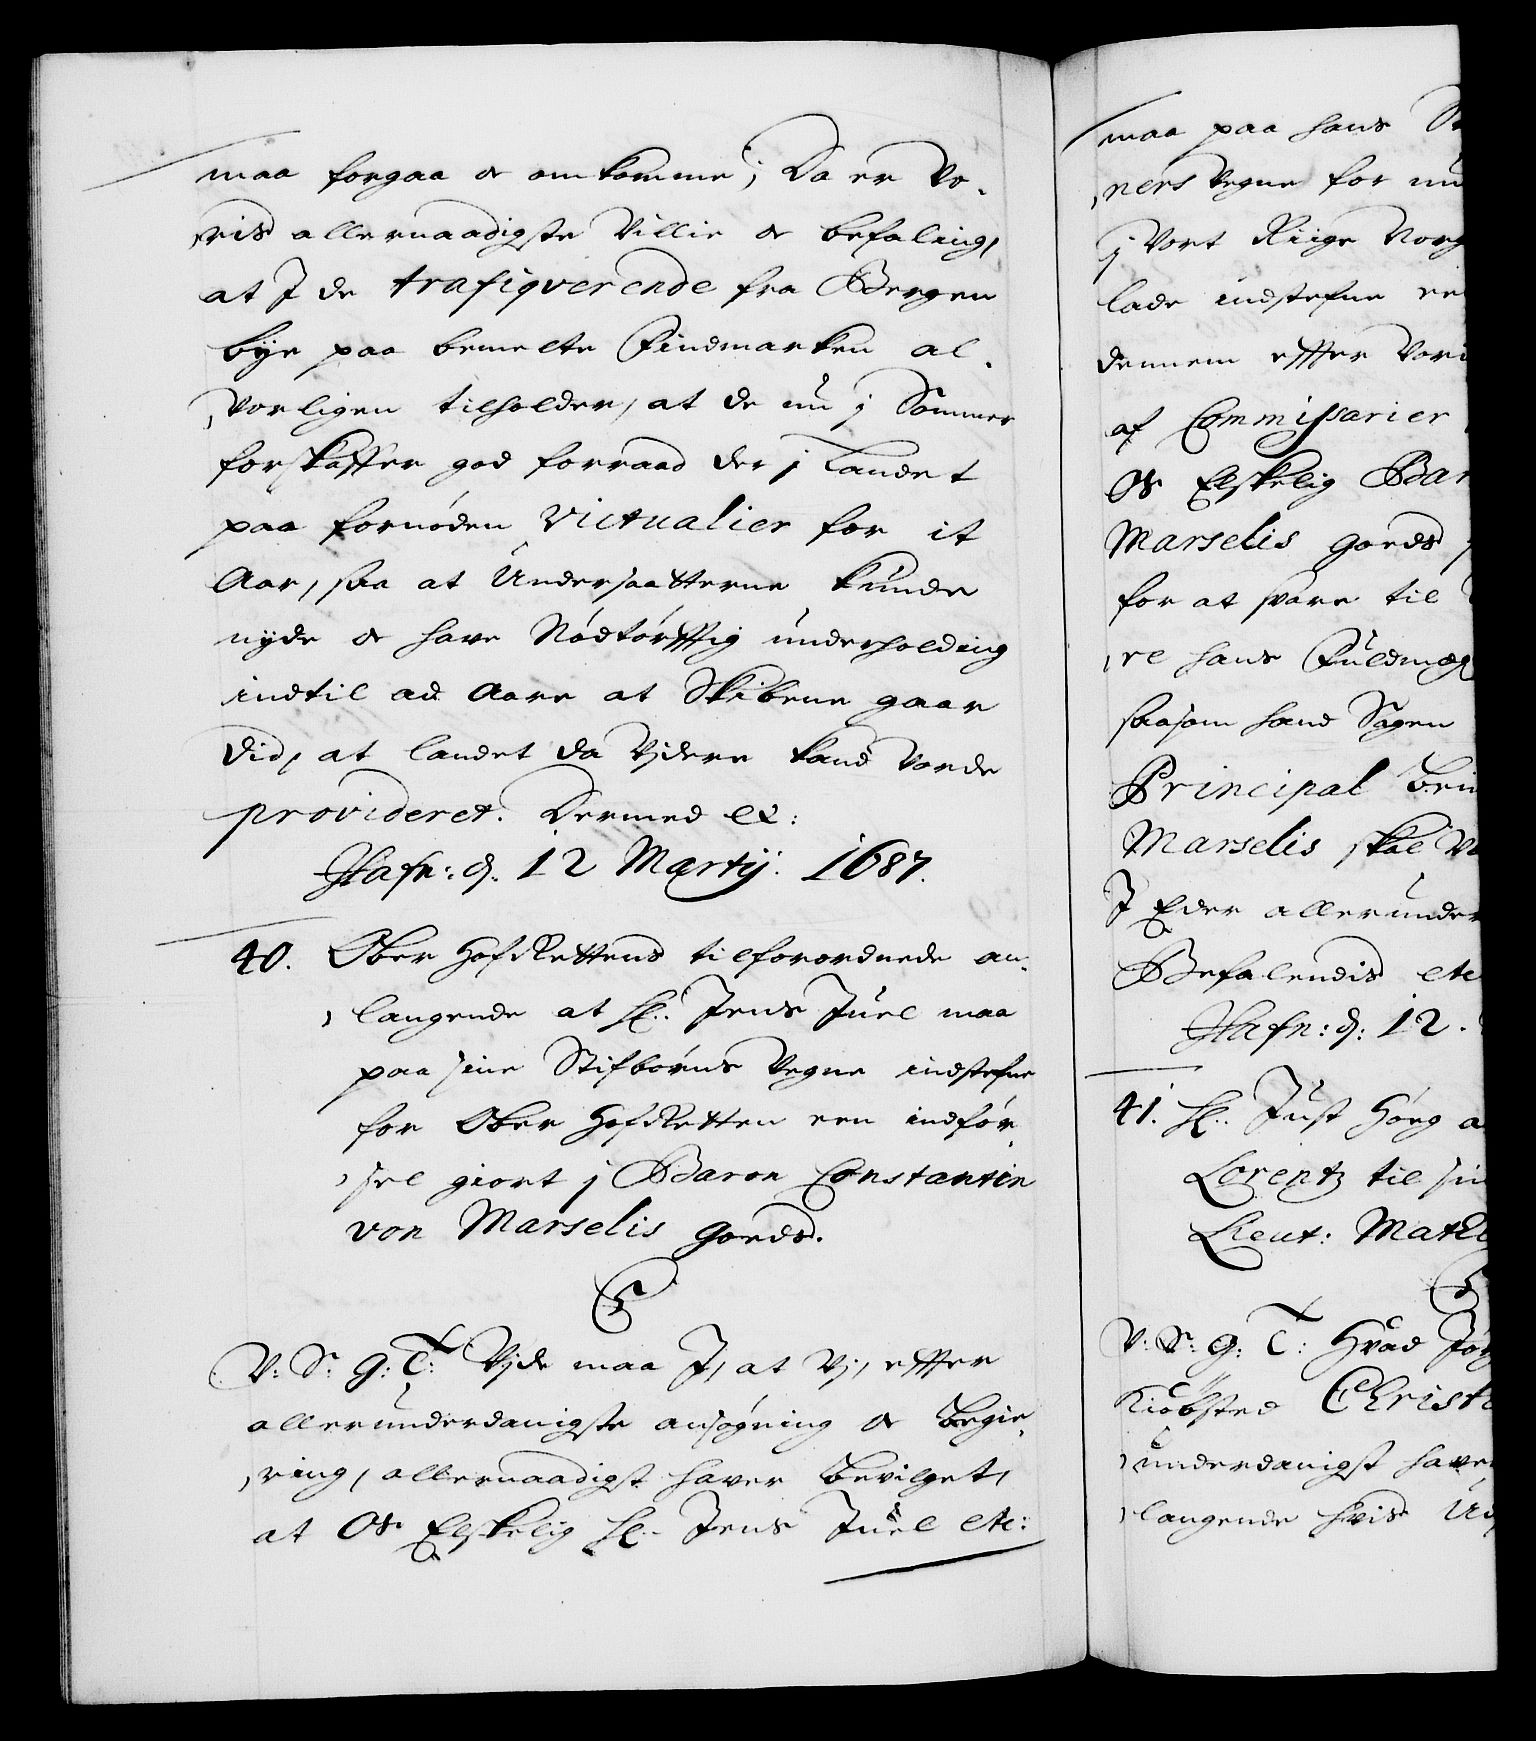 maa forgaa oc omkomme; Da er Vo-
,ris allernaadigste Villie oc befaling,
at I de trafiqverende fra Bergen
bye paa bemelte Findmarken al-
,vorligen tilholder, at de nu j Sommer
forskaffer god forraad der j Landet
paa fornöden Victualier for it
Aar, saa at Undersaatterne kunde
nyde oc have Nödtörfftig underholding
indtil ad Aare at Skibene gaar
did, at landet da Vjdere kand vorde
provideret. Dermed etc:
Hafn: d. 12 Martij. 1687.
40. Ober HofRettens tilforordnede an-
,langende at Hr. Jens Juel maa
paa sine Stifbörns Vegne indstefne
for Ober HofRetten een indför-
,sel giort j Baron Constantin
von Marselis goeds.
C5
V: S: G: T: Vjde maa I, at Vj, effter
allerunderdanigste ansögning oc begie-
,ring, allernaadigst haver bevilget,
at Os Elskelig Hr. Jens Juel etc:
maa paa hans
,ners Vegne for
j Vort Riige
lade indstefne
dennem effter
af Commissarier
Os Elskelig
Marselis goeds
for at svare til
,re hans
saasom hand Sagen
Principal
Marselis skal
I Eder
Befalendis etc
Hafn: d: 12.
41. Hr. Just Höeg
Lorentz til
Lieut:
V: S: G: T: Hvad
Kiöbsted
,underdanigst
,langende hvis